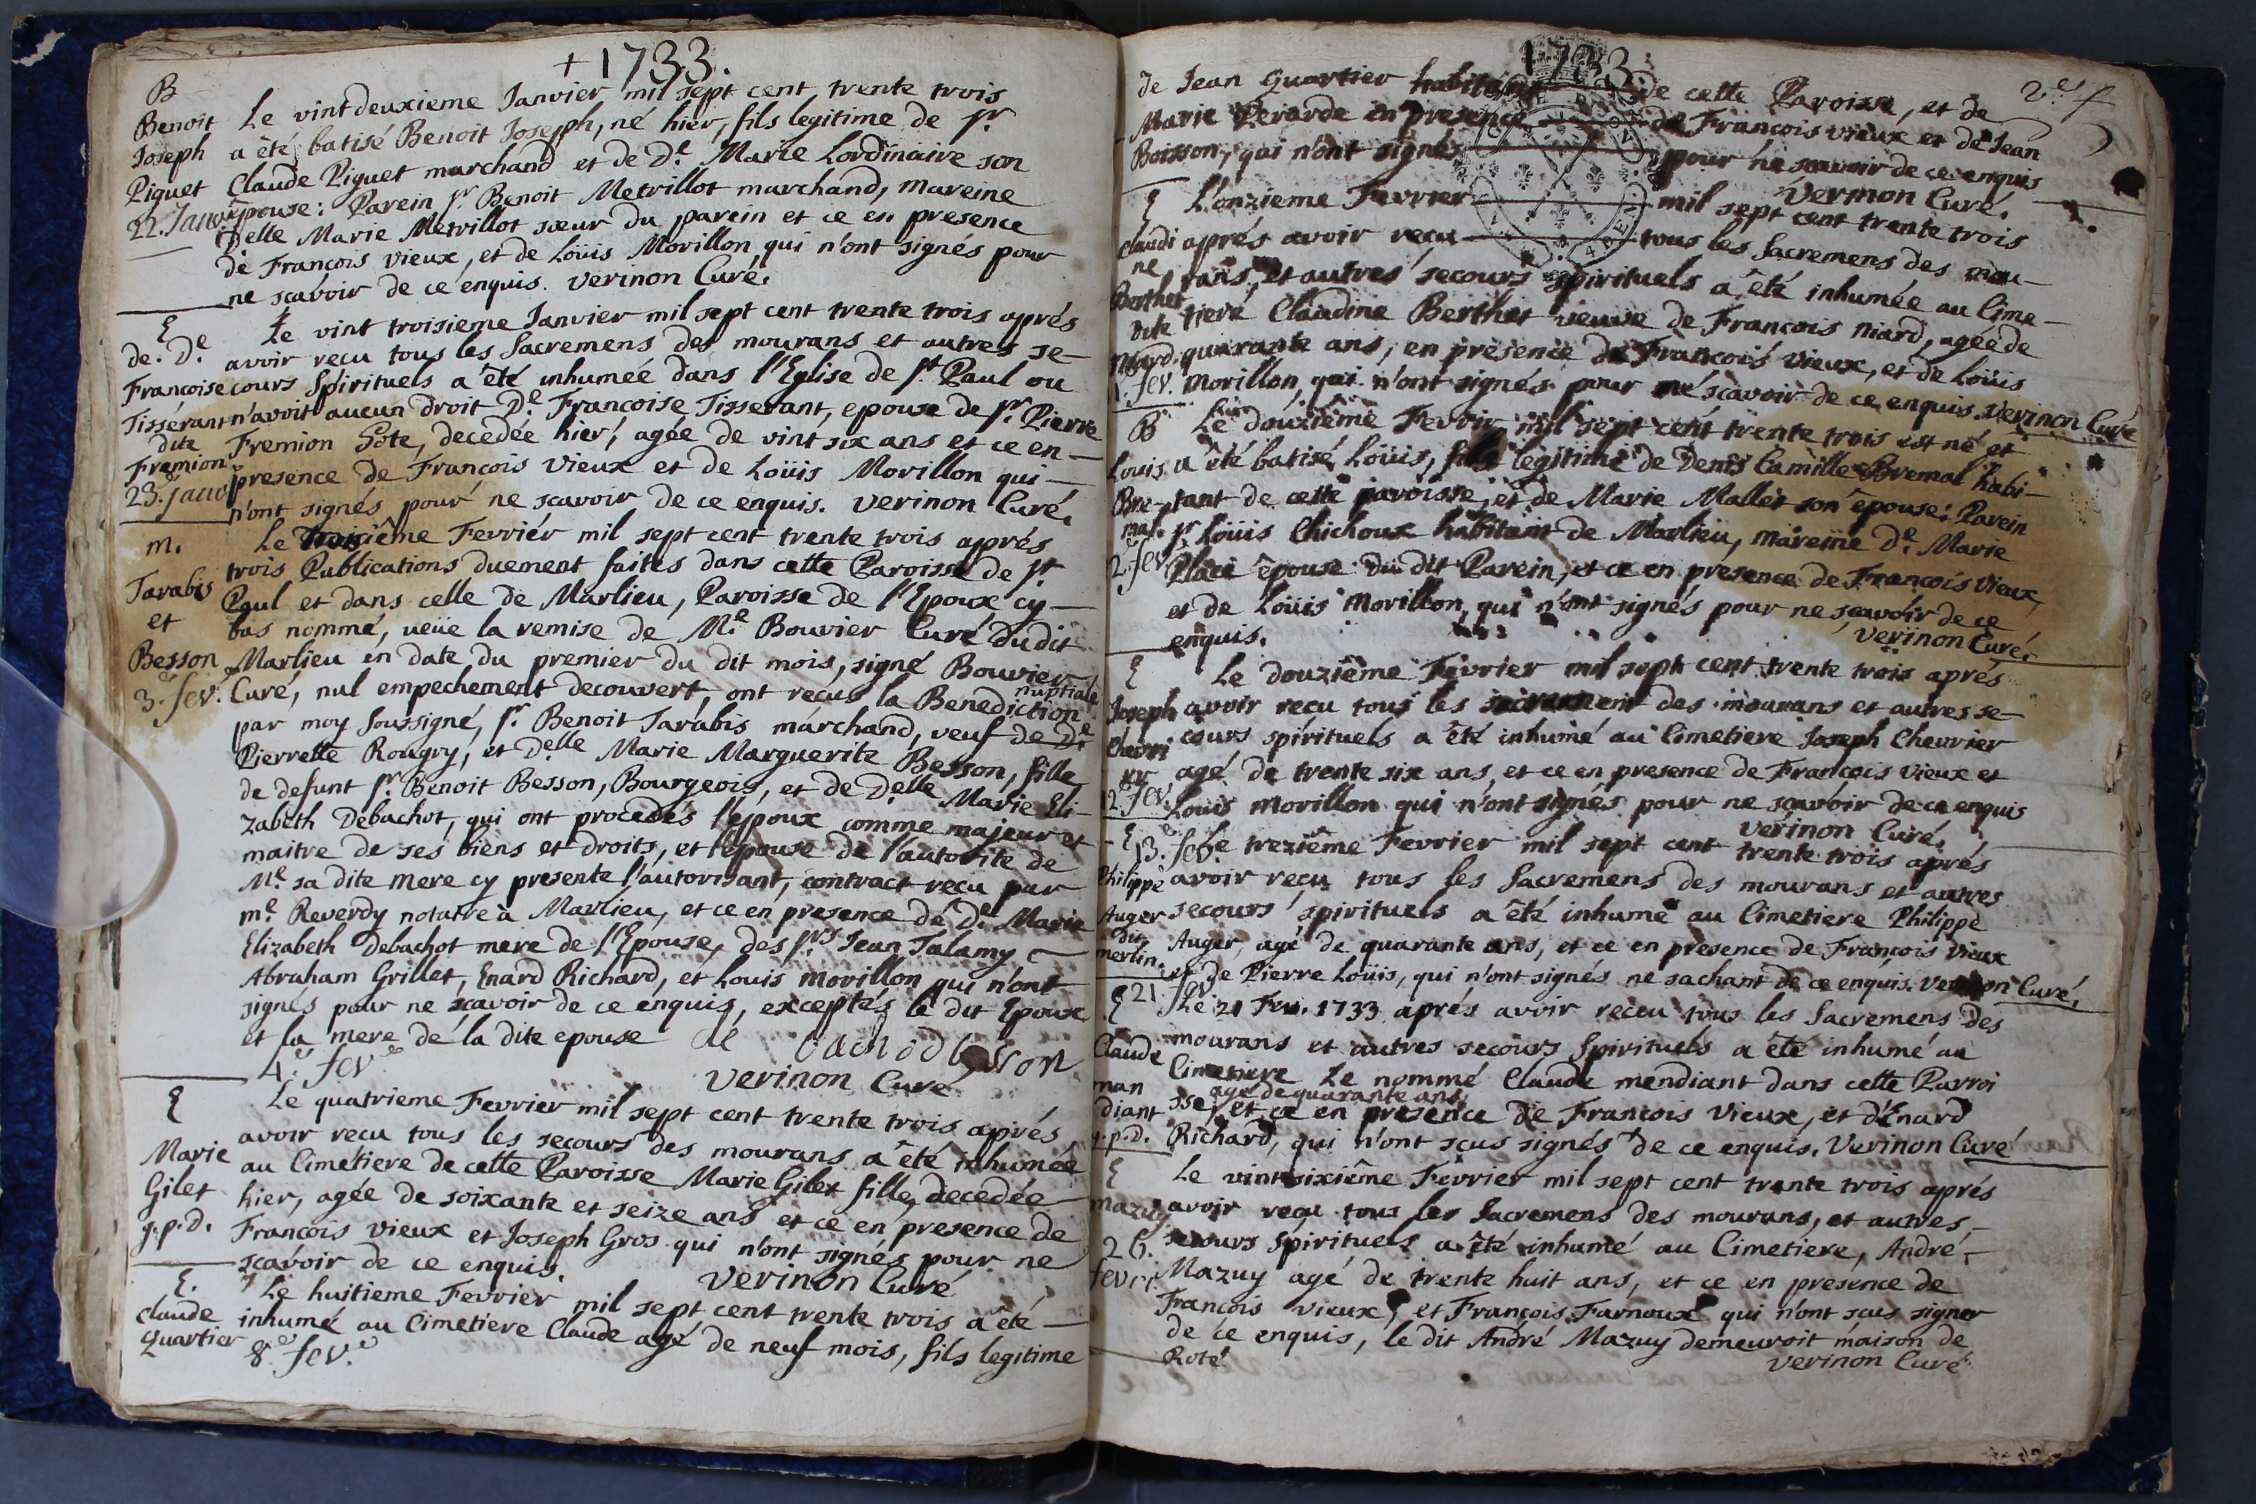 + 1733.
B
Benoit
Joseph
Piguet
22. Janv.
Le vint deuxieme Janvier mil sept cent trente trois
a été batisé Benoit Joseph, né hier, fils legitime de Sr.
Claude Piguet marchand et de De. Marie Lordinaire son
épouse: Parein Sr. Benoit Metrillot marchand, mareine
Delle Marie Metrillot sœur du parein et ce en presence
de François vieux, et de Loüis Morillon qui n'ont signés pour
ne scavoir de ce énquis. verinon Curé.
E
de. De.
Françoise
Tissérant
dite
Fremion
23. janv.
Le vint troisieme Janvier mil sept cent trente trois aprés
avoir recu tous les Sacremens des mourans et autres se-
cours Spirituels a été inhumée dans l'Eglise de St. Paul ou
n'avoit aucun droit De. Françoise Tisserant, epouse de Sr. Pierre
Fremion Gote, decedée hier, agée de vint six ans et ce en
presence de François Vieux et de Loüis Morillon qui
n'ont signés pour ne scavoir de ce enquis. verinon Curé.
m.
Tarabis
et
Besson
3e. fev.
Le Troisiême Fevriér mil sept cent trente trois aprés
trois Publications duement faites dans cette Paroisse de St.
Paul et dans celle de Marlieu, Paroisse de l'Epoux cy-
bas nommé, veüe la remise de Me. Bouvier Curé dudit
Marlieu en date du premier du dit mois, signé Bouvier
Curé, nul empechement decouvert, ont recus la Benediction nuptiale
par moy soussigné, Sr. Benoit Tarabis márchand, veuf de De.
Pierrette Rougry, et Delle Marie Marguerite Besson, fille
de defunt Sr. Benoit Besson, Bourgeois, et de Delle Marie Eli-
zabeth Debachot, qui ont procedés l'époux comme majeur et
maitre de ses biens et droits, et l'épouse de l'autorité de
Me. sa dite mere cy presente l'autorisant, contract recu par
me. Reverdy notaire à Marlieu, et ce en presence de De. Marie
Elizabeth Debachot mere de l'Epouse, des Srs. Jean Talamy
Abraham Grillet, Enard Richard, et Louis Morillon qui n'ont
signés pour ne scavoir de ce enquis, exceptés le dit Epoux
et la mere de la dite epouse de bachod besson
4e. fev.
verinon Curé
E
Marie
Gilet
g.p.d.
Le quatrieme Fevrier mil sept cent trente trois aprés
avoir recu tous les secours des mourans a été inhumée
au Cimétiere de cette Paroisse Marie Gilet fille, decedée
hier, agée de soixante et seize ans et ce en presence de
François vieux et Joseph Gros qui n'ont signés pour ne
scavoir de ce enquis.
verinon Curé
E.
Claude
Quartier
8e. fev.
Le huitieme Fevrier mil sept cent trente trois a été
inhumé au Cimetiere Claude agé de neuf mois, fils legitime
1733.
2e. f
de Jean Quartier habitant de cette Paroisse, et de
Marie Perarde en presence de François vieux et de Jean
Boisson, qui n'ont signés pour ne scavoir de ce enquis
verinon Curé.
E
Claudi
ne
Berthet
dite
Niard
fev.
L'onzieme Fevrier mil sept cent trente trois
aprés avoir recu tous les Sacremens des mou-
rans, et autres secours spirituels a été inhumée au Cime-
tieré Claudine Berthet vieuve de François Niard, agée de
quarante ans, en présence de François vieux, et de Loüis
Morillon, qui n'ont signés pour né scavoir de ce enquis. Verinon Curé
B
Louis
Bre-
mal.
fev.
Le douziême Fevrier mil sept cent trente trois est né, et
a été batisé, Loüis, fils legitime de Denis Camille Bremal habi-
tant de cette paroisse, et de Marie Mallet son épouse: Parein
Sr. Loüis Chichoux habitant de Marlieu, mareine De. Marie
Place épouse du dit Parein, et ce en presence de François vieux,
et de Loüis Morillon, qui n'ont signés pour ne scavoir de ce
enquis.
verinon Curé.
E
Joseph
Chevri
er
12e. fev.
Le douziême Fevrier mil sept cent trente trois aprés
avoir recu tous les sacrement des mourans et autres se-
cours spirituels a été inhumé au Cimetiere Joseph Chevrier
agé de trente six ans, et ce en presence de François vieux et
Louis Morillon qui n'ont signés pour ne scavoir de ce enquis
verinon Curé.
E
13. fev.
Philippe
Auger
dit
merlin.
Le treziême Fevrier mil sept cent trente trois aprés
avoir recu tous les Sacremens des mourans et autres
secours spirituels a été inhumé au Cimetiere Philippe
Auger, agé de quarante ans, et ce en presence de François Vieux
et de Pierre Loüis, qui n'ont signés ne sachant de ce enquis. Verinon Curé.
E
21. fev.
Claude
man
diant
g.p.d.
Le 21 Fev. 1733 aprés avoir receu tous les Sacremens des
mourans et autres secours Spirituels a été inhumé au
Cimetiere Le nommé Claude mendiant dans cette Parroi
sse, agé de quarante ans, et ce en presence de François Vieux, et d'Enard
Richard, qui n'ont scus signés de ce enquis. Verinon Curé
E
Mazuy
26.
fevrier
Le vint sixiême Fevrier mil sept cent trente trois aprés
avoir reçu tous les Sacremens des mourans, et autres
secours Spirituels a été inhumé au Cimetiere, André
Mazuy agé de trente huit ans, et ce en presence de
François vieux, et François Farnoux qui n'ont scus signer
de ce enquis, le dit André Mazuy demeuroit maison de
Roté
verinon Curé